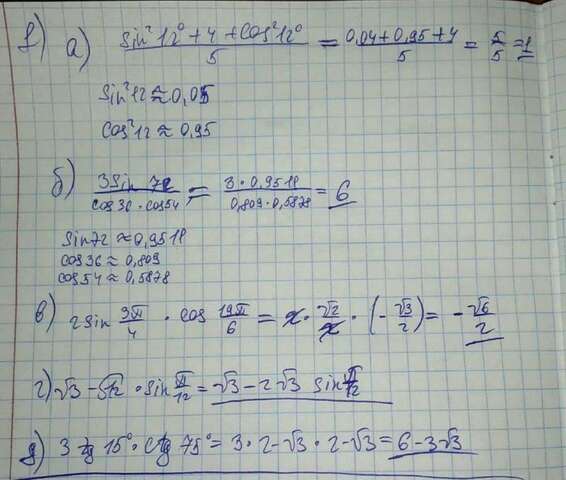 1) а) (sin²12° + 4 + cos²12°)/5 = (0,04 + 0,95 + 4)/5 = 5/5 = 1
sin²12 ≈ 0,05
cos²12 ≈ 0,95
б) (3 sin 72)/(cos 36 · cos 54) = (3 · 0,9511)/(0,809 · 0,5878) = 6
sin 72 ≈ 0,9511
cos 36 ≈ 0,809
cos 54 ≈ 0,5878
в) 2 sin 9π/4 · cos 19π/6 = 2 · √2/2 · (- √3/2) = - √6/2
г) √3 - √12 · sin π/12 = √3 - 2√3 sin π/12
д) 3 tg 15° · ctg 75° = 3 · 2 - √3 · 2 - √3 = 6 - 3√3